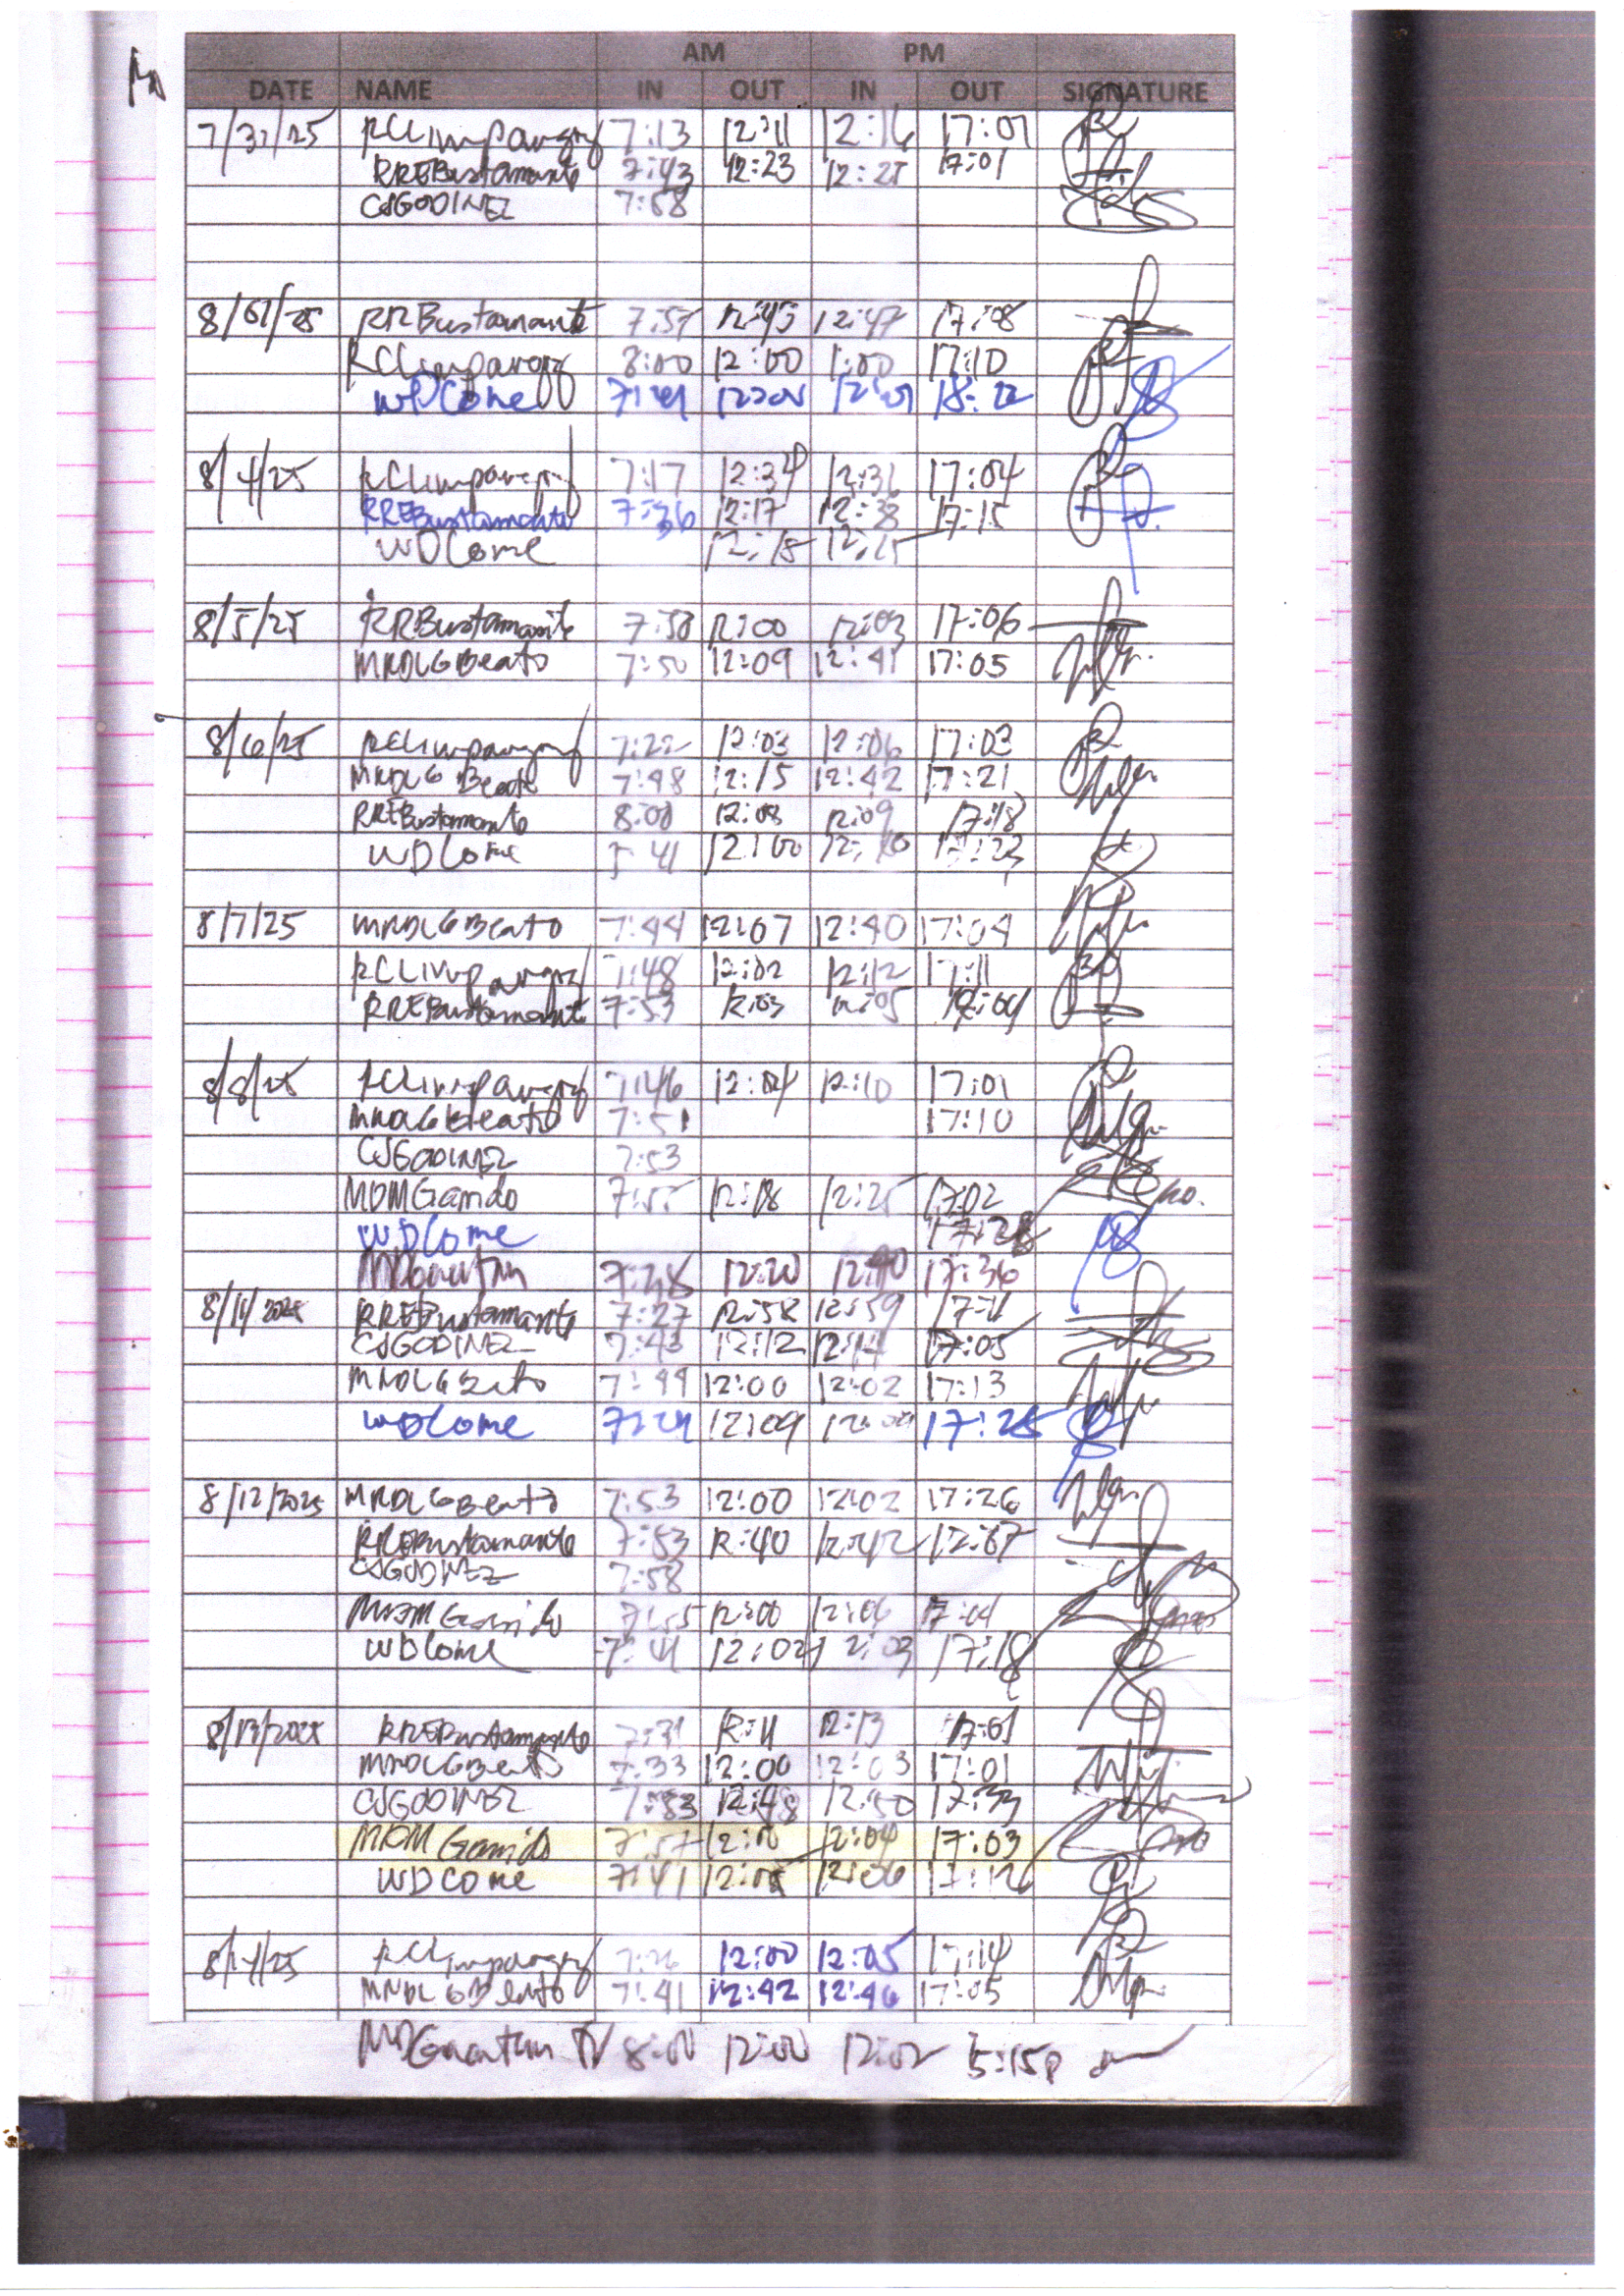 AM PM
DATE NAME IN OUT IN OUT SIGNATURE
7/31/25 RCLimpangog 7:13 12:11 12:16 17:01
RREBustamante 7:43 12:23 12:25 17:01
CSGODINEZ 7:58
8/01/25 RRBustamante 7:57 12:45 12:47 17:08
RCLimpangog 8:00 12:00 1:00 17:10
WDCome
8/4/25 RCLimpangog 7:17 12:34 17:04
RREBustamante 7:36 12:17 12:38 17:15
WDCome 12:18 12:25
8/5/25 RRBustamante 7:58 12:00 12:03 17:06
MRDLGBeato 7:50 12:09 12:41 17:05
8/6/25 RCLimpangog 7:22 12:03 12:06 17:03
MRDLGBeato 7:48 12:15 12:42 17:21
RREBustamante 8:00 12:08 12:09 17:18
WDCome 12:00
8/7/25 MRDLGBeato 7:44 12:07 12:40 17:04
RCLimpangog 7:48 12:02 12:12 17:11
RREBustamante 7:53 12:03 12:05
8/8/25 RCLimpangog 7:46 12:04 12:10 17:01
MRDLGBeato 7:51 17:10
CSGODINEZ 7:53
MDMGarrido 7:55 12:18 12:25 17:02
WDCome 17:28
7:28 12:20 12:40 17:36
8/11/2025 RREBustamante 7:27 12:58 12:59 17:11
CSGODINEZ 7:43 12:12 12:14 17:05
MRDLGBeato 7:49 12:00 12:02 17:13
WDCome 12:09 17:25
8/12/2025 MRDLGBeato 7:53 12:00 12:02 17:26
RREBustamante 7:53 12:40 12:42
CSGODINEZ 7:58
MDMGarrido 7:55 12:00 12:06 17:01
WDCome 7:41 12:02 12:03 17:18
8/13/2025 RREBustamante 7:31 12:11 12:13 17:01
MRDLGBeato 7:33 12:00 12:03 17:01
CSGODINEZ 7:53 12:48 12:50 17:33
MDMGarrido 7:57 12:04 17:03
WDCOme 7:41 12:05 12:06
8/14/25 RCLimpangog 12:00 12:05 17:14
MRDLGBeato 7:41 12:42 12:46 17:05
8:00 12:00 12:02 5:15p